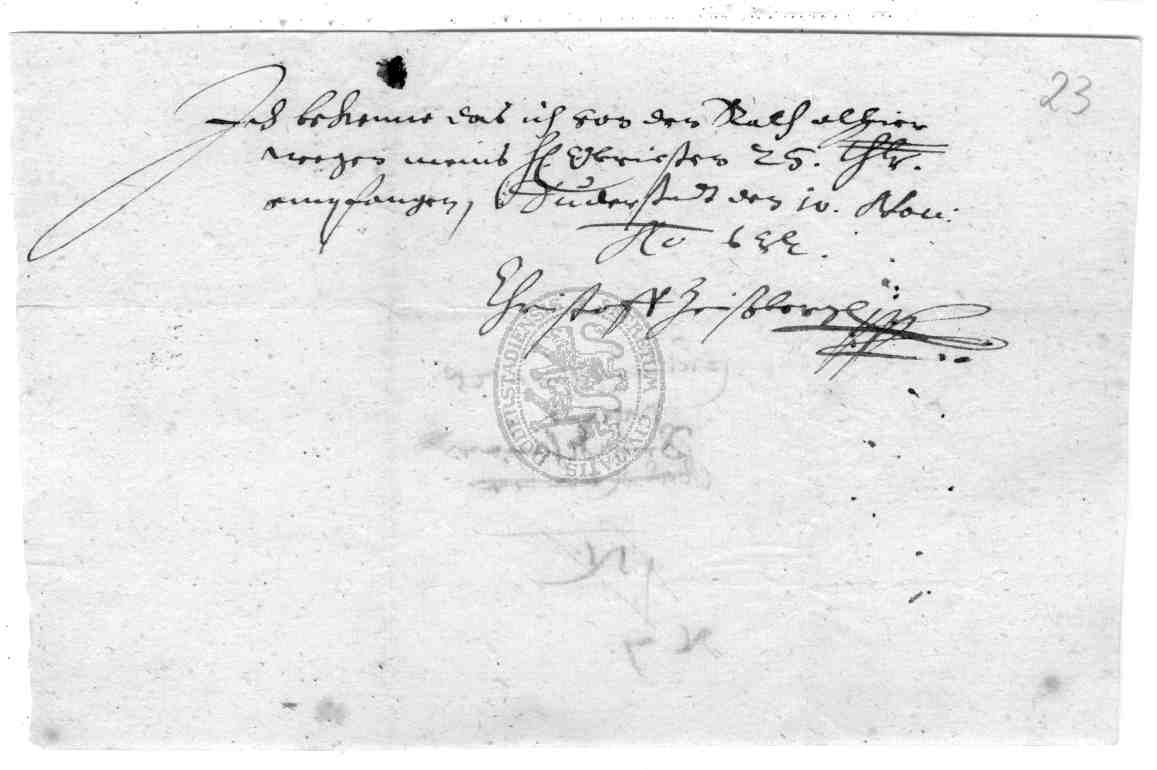 23
Ich bekenne das ich von den Rath alhier
wegen meins H Obristen 25. Thlr.
empfangen, Duderstadt den 10. Nou:
Ao 633.
Christoff
SIGILLUM VETERUM CIVITATIS DUDERSTADIENSIS